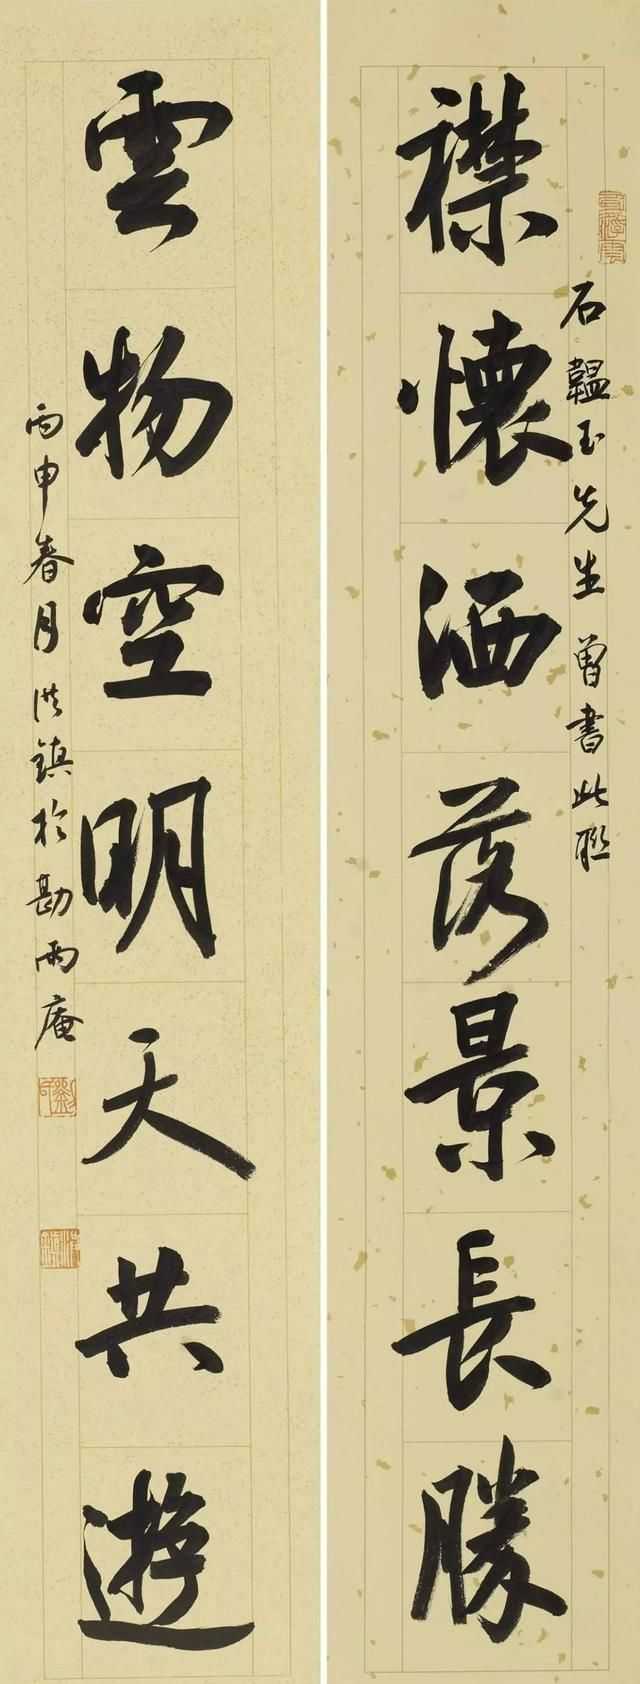 襟懷洒落景長勝
石韞玉先生曾書此聯
雲物空明天共遊
丙申春月洪鎮於勘雨庵